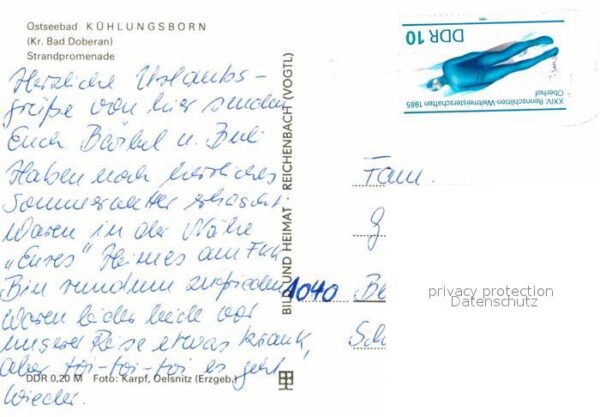 Ostseebad KÜHLUNGSBORN
(Kr. Bad Doberan)
Strandpromenade
Herzliche Urlaubs-
grüße von hier senden
Euch Bärbel u.
Haben noch herrliches
Sommerwetter
Waren in der Nähe
„Eures" Heimes am FKK
Bin rundum zufrieden
Waren leider beide vor
unserer Reise etwas krank,
aber toi-toi-toi es geht
wieder.
DDR 0,20 M Foto: Karpf, Oelsnitz (Erzgeb.)
BILD UND HEIMAT · REICHENBACH (VOGTL)
DDR 10
XXIV. Rennschlitten-Weltmeisterschaften 1985
Oberhof
Fam.
G
1040 Be
Sc
privacy protection
Datenschutz